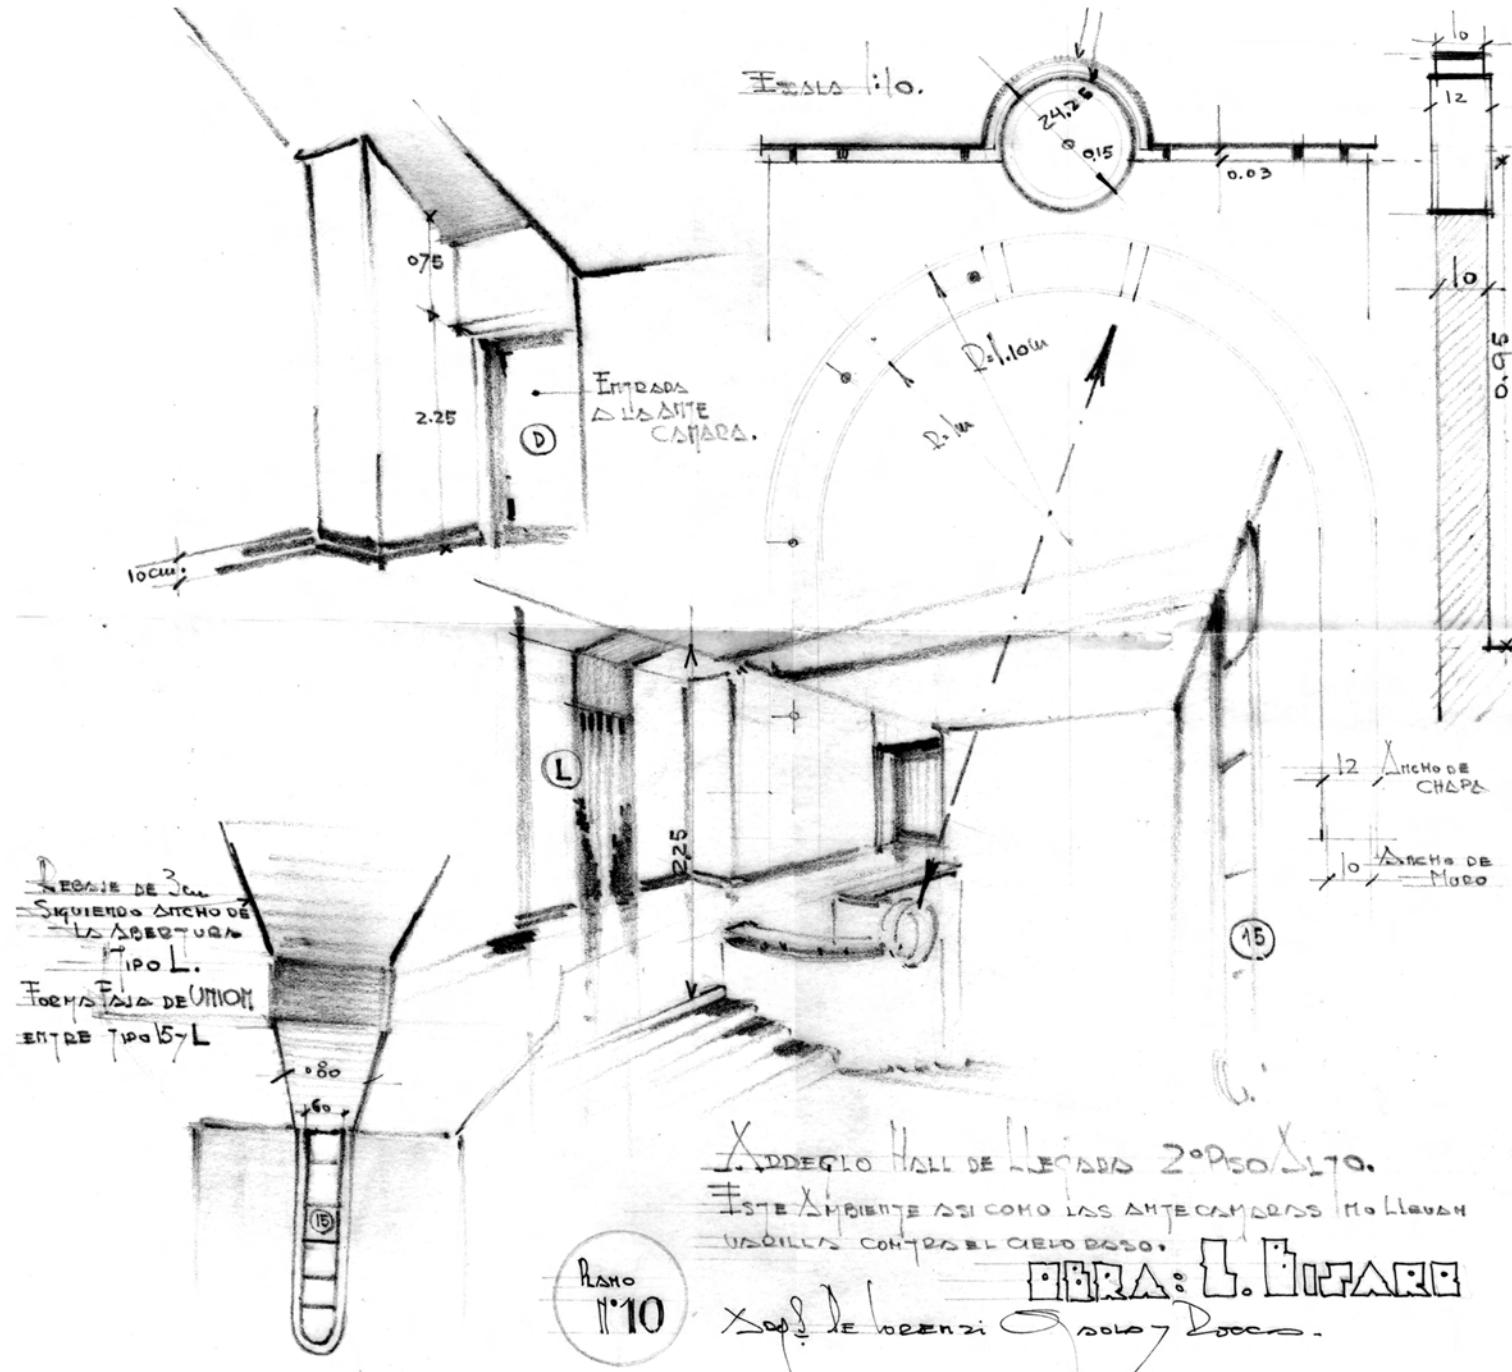 Escala 1:10.
24.25
0.15
0.03
10
12
10
0.95
075
2.25
D
Entrada
a la ante
camara.
10 cm.
R=1.10 cm
R=1m
L
2.25
15
12 Ancho de
chapa
10 Ancho de
muro
Rebaje de 3 cm
siguiendo ancho de
la abertura
Tipo L.
Forma faja de union
entre tipo 15 y L
080
60
15
Arreglo Hall de Llegada 2º Piso Alto.
Este ambiente asi como las antecamaras no llevan
varilla contra el cielo raso.
Plano
Nº10
OBRA: L. BIJARRO
De Lorenzi Otaola y Rocca.